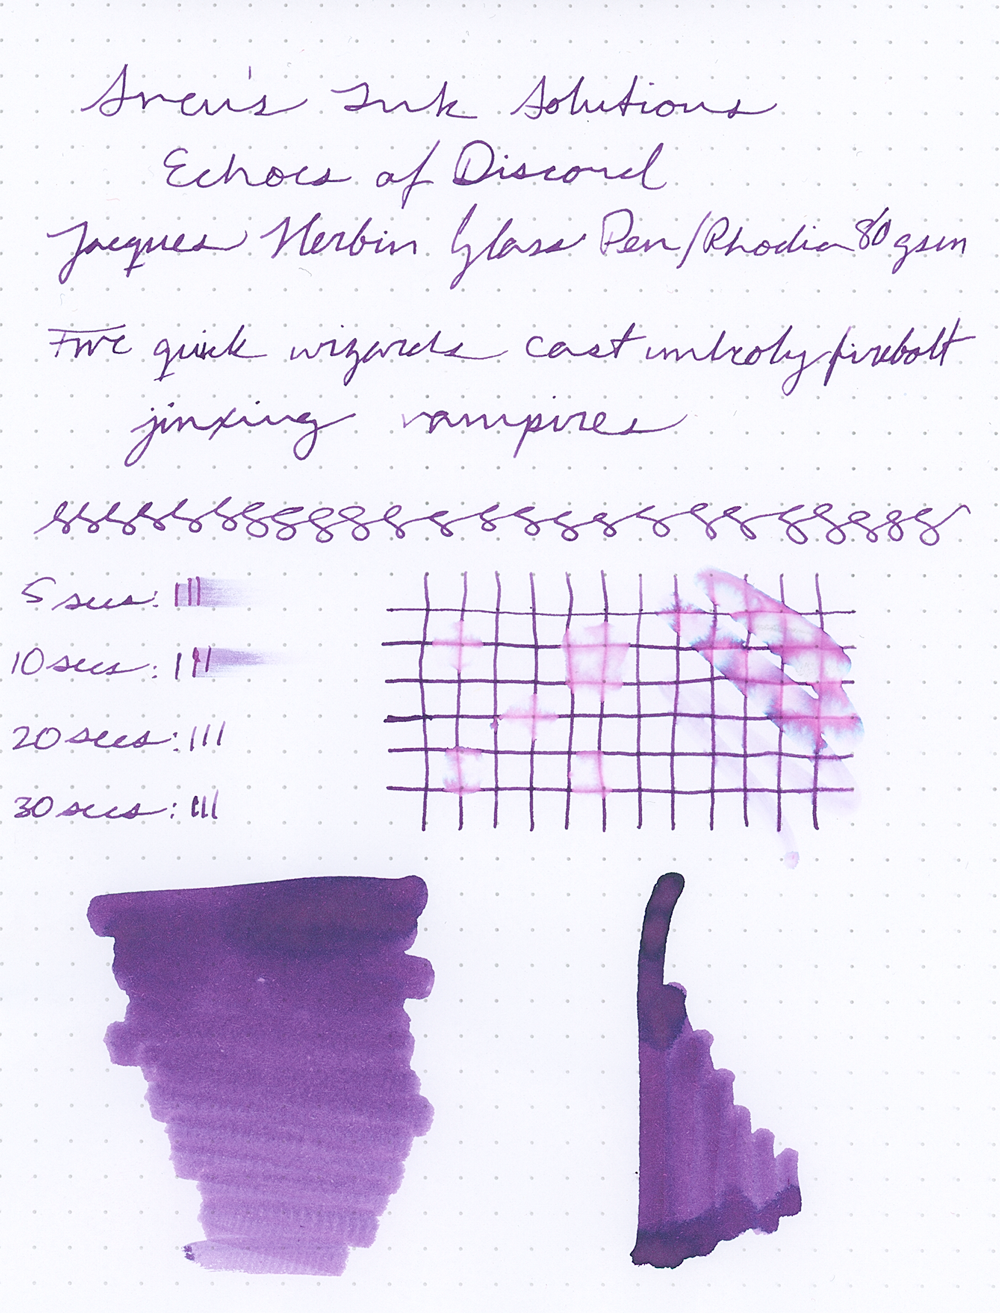 Ink Solutions
Echoes of Discord
Jacques Herbin Glass Pen/Rhodia 80 gsm
Five quick wizards cast unholy firebolt
jinxing vampires
5 secs:
10 secs:
20 secs:
30 secs: